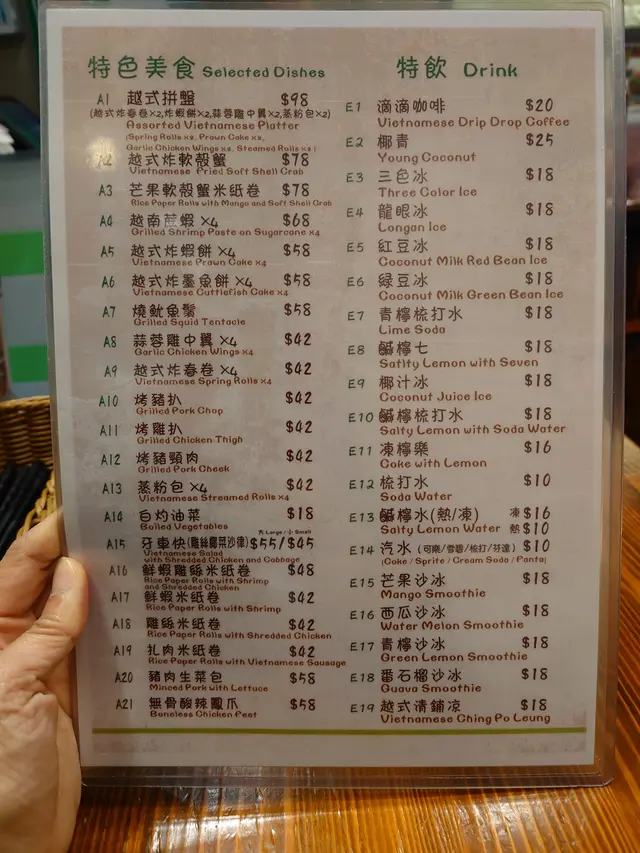 特色美食 Selected Dishes
A1 越式拼盤 $98
(越式炸春卷×2,炸蝦餅×2,蒜蓉雞中翼×2,蒸粉包×2)
Assorted Vietnamese Platter
(Spring Rolls x2, Prawn Cakes x2,
Garlic Chicken Wings x2, Steamed Rolls x2)
A2 越式炸軟殼蟹 $78
Vietnamese Fried Soft Shell Crab
A3 芒果軟殼蟹米紙卷 $78
Rice Paper Rolls with Mango and Soft Shell Crab
A4 越南蔗蝦 ×4 $68
Grilled Shrimp Paste on Sugarcane x4
A5 越式炸蝦餅 ×4 $58
Vietnamese Prawn Cake x4
A6 越式炸墨魚餅 ×4 $58
Vietnamese Cuttlefish Cake x4
A7 燒魷魚鬚 $58
Grilled Squid Tentacle
A8 蒜蓉雞中翼 ×4 $42
Garlic Chicken Wings x4
A9 越式炸春卷 ×4 $42
Vietnamese Spring Rolls x4
A10 烤豬扒 $42
Grilled Pork Chop
A11 烤雞扒 $42
Grilled Chicken Thigh
A12 烤豬頸肉 $42
Grilled Pork Cheek
A13 蒸粉包 ×4 $42
Vietnamese Streamed Rolls x4
A14 白灼油菜 $18
Boiled Vegetables
大 Large / 小 Small
A15 牙車快(雞絲椰菜沙律) $55/$45
Vietnamese Salad
with Shredded Chicken and Cabbage
A16 鮮蝦雞絲米紙卷 $48
Rice Paper Rolls with Shrimp
and Shredded Chicken
A17 鮮蝦米紙卷 $42
Rice Paper Rolls with Shrimp
A18 雞絲米紙卷 $42
Rice Paper Rolls with Shredded Chicken
A19 扎肉米紙卷 $42
Rice Paper Rolls with Vietnamese Sausage
A20 豬肉生菜包 $58
Minced Pork with Lettuce
A21 無骨酸辣鳳爪 $58
Boneless Chicken Feet
特飲 Drink
E1 滴滴咖啡 $20
Vietnamese Drip Drop Coffee
E2 椰青 $25
Young Coconut
E3 三色冰 $18
Three Color Ice
E4 龍眼冰 $18
Longan Ice
E5 紅豆冰 $18
Coconut Milk Red Bean Ice
E6 绿豆冰 $18
Coconut Milk Green Bean Ice
E7 青檸梳打水 $18
Lime Soda
E8 鹹檸七 $18
Satlty Lemon with Seven
E9 椰汁冰 $18
Coconut Juice Ice
E10 鹹檸梳打水 $18
Salty Lemon with Soda Water
E11 凍檸樂 $16
Coke with Lemon
E12 梳打水 $10
Soda Water
E13 鹹檸水(熱/凍) 凍 $16
Salty Lemon Water 熱 $10
E14 汽水 (可樂/雪碧/梳打/芬達) $10
(Coke / Sprite / Cream Soda / Fanta)
E15 芒果沙冰 $18
Mango Smoothie
E16 西瓜沙冰 $18
Water Melon Smoothie
E17 青檸沙冰 $18
Green Lemon Smoothie
E18 番石榴沙冰 $18
Guava Smoothie
E19 越式清鋪涼 $18
Vietnamese Ching Po Leung